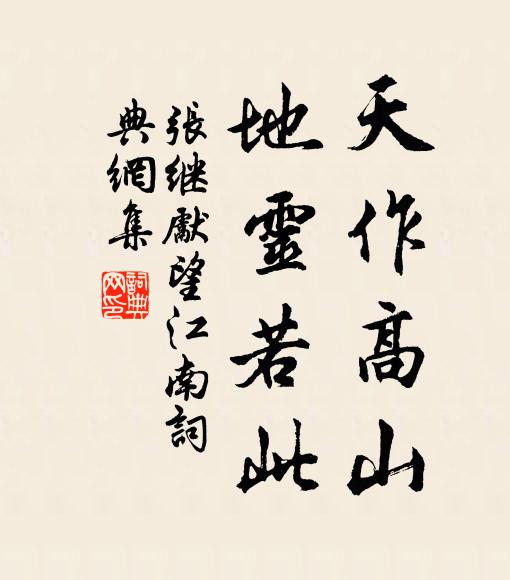 天作高山
地靈若此
張继獻望江南詞
典網集
詞典
网印